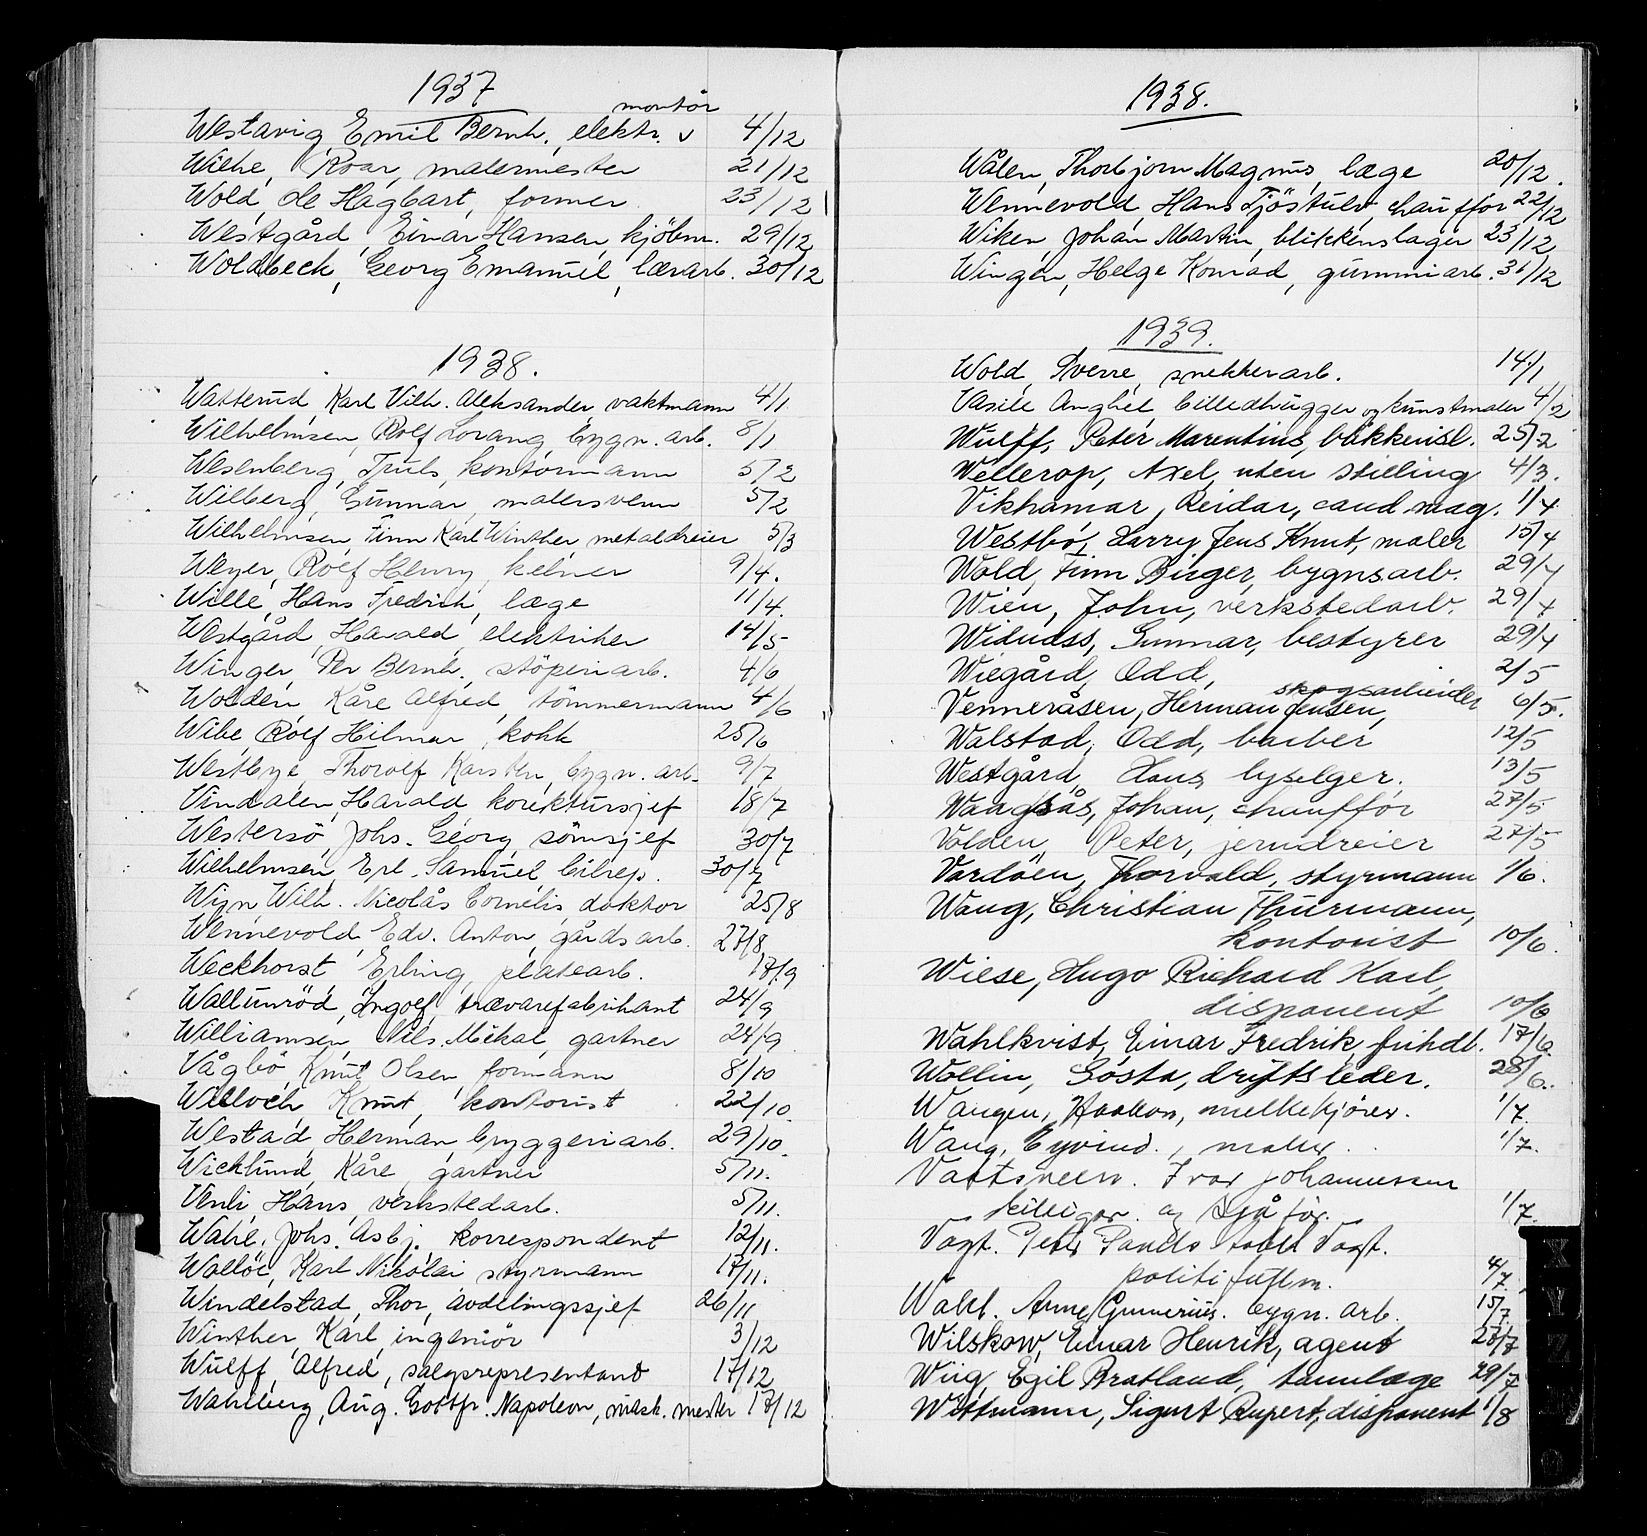 1937
montör
Westavig, Emil Bernh., elektr. v 4/12
Wilhe, Roar, malermester 21/12
Wold, Ole Hagbart, former 23/12
Westgård, Einar Hansen, kjöbm. 29/12
Woldbeck, Georg Emanuel, lærarb. 30/12
1938.
Watterud, Karl Vilh. Aleksander, vaktmann 4/1
Wilhelmsen, Rolf Lorang, bygn. arb. 8/1
Wesenberg, Truls, kontormann 5/2
Wilberg, Gunnar, malersvenn 5/2
Wilhelmsen Finn Karl Winther metaldreier 5/3
Weyer, Rolf Henry, kelner 9/4.
Wille, Hans Fredrik, læge 11/4.
Westgård, Harald, elektriker 14/5
Winger, Per Bernh., stöperiarb. 4/6
Wolden, Kåre Alfred, tömmermann 4/6
Wibe, Rolf Hilmar, kokk 25/6
Westbye, Thorolf Karsten, bygn. arb. 9/7
Vindalen, Harald korektursjef 18/7
Westersö, Johs. Georg, sömsjef 30/7
Wilhelmsen, Erl. Samuel bilrep. 30/7
Wign Wilh. Nicolås Cornelis, doktor 25/8
Wennevold Edv. Anton, gårdsarb. 27/8
Weckhorst, Erling, platearb. 17/9
Wallumröd, Ingolf, trævarefabrikant 24/9
Williamsen, Nils Mikal, gartner 24/9
Vågbö, Knut Olsen, formann 8/10
Willoch, Knut, kontorist 22/10
Westad, Herman, bryggeriarb. 29/10.
Wicklund, Kåre, gartner 5/11.
Venli, Hans, verkstedarb. 5/11.
Wahl, Johs. Asbj. korrespondent 12/11.
Wallöe, Karl Nikolai styrmann 17/11.
Windelstad, Thor, avdelingssjef 26/11
Winther, Karl, ingeniör 3/12
Wulff, Alfred, salgsrepresentant 17/12
Wahlberg, Aug. Gottfr. Napoleon, mask. mester 17/12
1938.
Wålen, Thorbjorn Magnus, læge 20/12.
Wennevold, Hans Tjöstulv, chaufför 22/12
Wiken, Johan Martin, blikkenslager 23/12
Wingen, Helge Konrad, gummiarb. 31/12
1939.
Wold, Sverre, snekkerarb. 14/1
Vasile Anghel billedhugger og kunstmaler 4/2
Wulff, Peter Marentius, blikkensl. 25/2
Wellerop, Axel, uten stilling 4/3.
Vikhamar, Reidar, cand mag. 1/4
Westbö, Harry Jens Knut, maler 15/4
Wold, Finn Birger, bygnsarb. 29/4
Wien, John, verkstedarb. 29/4
Widnäss, Gunnar, bestyrer 29/4
Wiegård, Odd, 2/5
skogsarbeider
Venneråsen, Herman Jensen, 6/5.
Walstad, Odd, barber 12/5
Westgård, Hans, lyselger. 13/5
Waagsås, Johan, chauffør 27/5
Volden, Peter, jerndreier 27/5
Vardöen, Thorvald, styrmann 1/6.
Wang, Christian Thurmann,
kontorist 10/6.
Wiese, Hugo Richard Karl,
disponent 10/6
Wahlkvist, Einar Fredrik, frihdl. 17/6
Wollin, Gösta, driftsleder. 28/6.
Wangen, Haakon, melkekjører. 1/7.
Wang, Eyvind., maler. 1/7.
Vattsveen. Ivar Johannessen
og Sjåför. 1/7.
Vogt. Peter Vogt.
politifullm. 4/7.
Wahl. Arne Gunerius. bygn. arb. 15/7
Wilskow, Einar Henrik, agent 28/7
Wiig, Egil Bratland, tannlæge 29/7
Wittmann, Sigurt Rupert, disponent 1/8
X
Y
Z